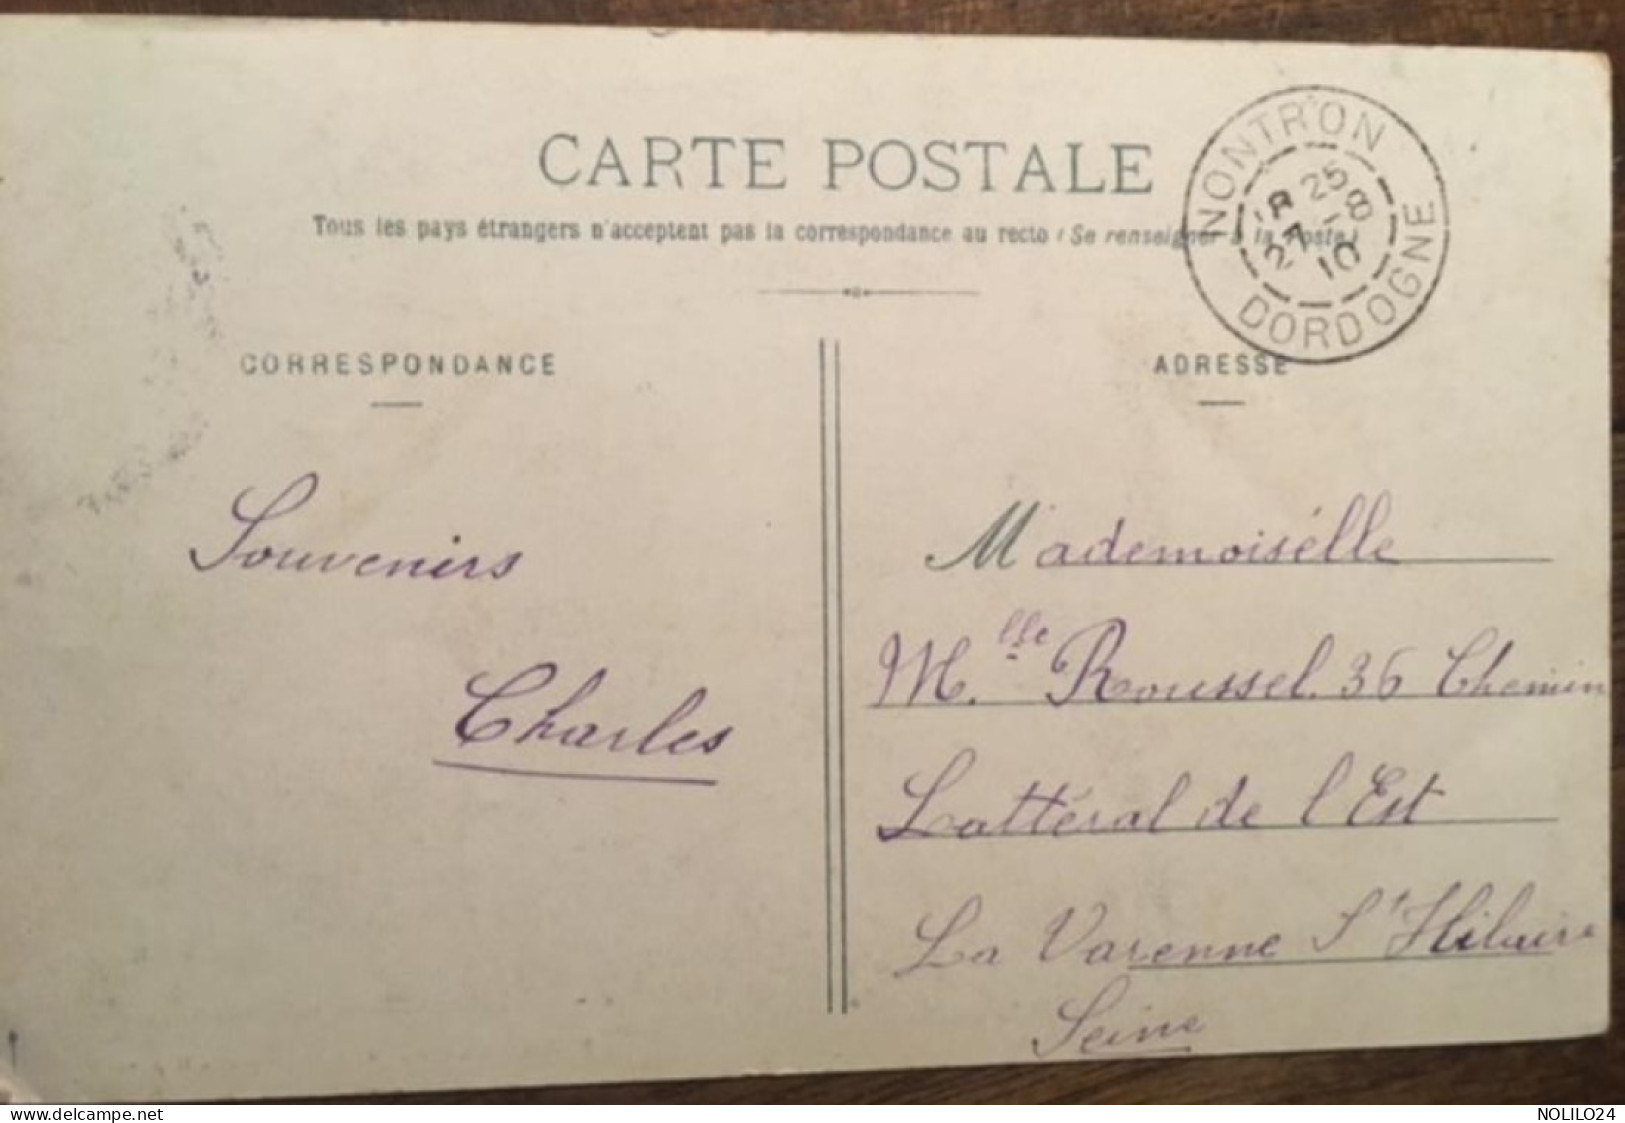 CARTE POSTALE
Tous les pays étrangers n'acceptent pas la correspondance au recto (Se renseigner à la Poste)
NONTRON
18 25
27 -8
10
DORDOGNE
CORRESPONDANCE
Souvenirs
Charles
ADRESSE
Mademoisélle
M.lle Roussel. 36 Chemin
Lattéral de l'Est
La Varenne St Hilaire
Seine
www.delcampe.net
NOLILO24